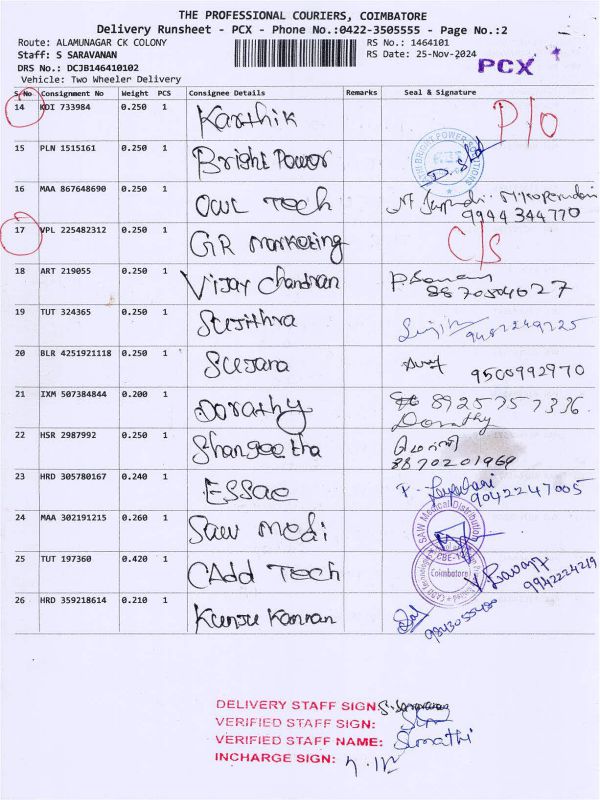 THE PROFESSIONAL COURIERS, COIMBATORE
Delivery Runsheet - PCX - Phone No.:0422-3505555 - Page No.:2
Route: ALAMUNAGAR CK COLONY RS No.: 1464101
Staff: S SARAVANAN RS Date: 25-Nov-2024
DRS No.: DCJB146410102 PCX
Vehicle: Two Wheeler Delivery
S No Consignment No Weight PCS Consignee Details Remarks Seal & Signature
14 KDI 733984 0.250 1 Karthik P/O
15 PLN 1515161 0.250 1 Bright Power
16 MAA 867648690 0.250 1 OWL Tech
9944344770
17 VPL 225482312 0.250 1 GR Marketing C/S
18 ART 219055 0.250 1 Vijay Chandran
8870504027
19 TUT 324365 0.250 1 Sujithra
9487249725
20 BLR 4251921118 0.250 1 Sujana
9500992970
21 IXM 507384844 0.200 1 Dorathy 8925757336
Dorathy
22 HSR 2987992 0.250 1 Shangeetha
8870201969
23 HRD 305780167 0.240 1 ESSae
9042247005
24 MAA 302191215 0.260 1 Saw Medi SAW Medical Distribution
25 TUT 197360 0.420 1 CAdd Tech Coimbatore
9942224219
26 HRD 359218614 0.210 1 Kunju Kannan
DELIVERY STAFF SIGN:
VERIFIED STAFF SIGN:
VERIFIED STAFF NAME: Sumathi
INCHARGE SIGN: